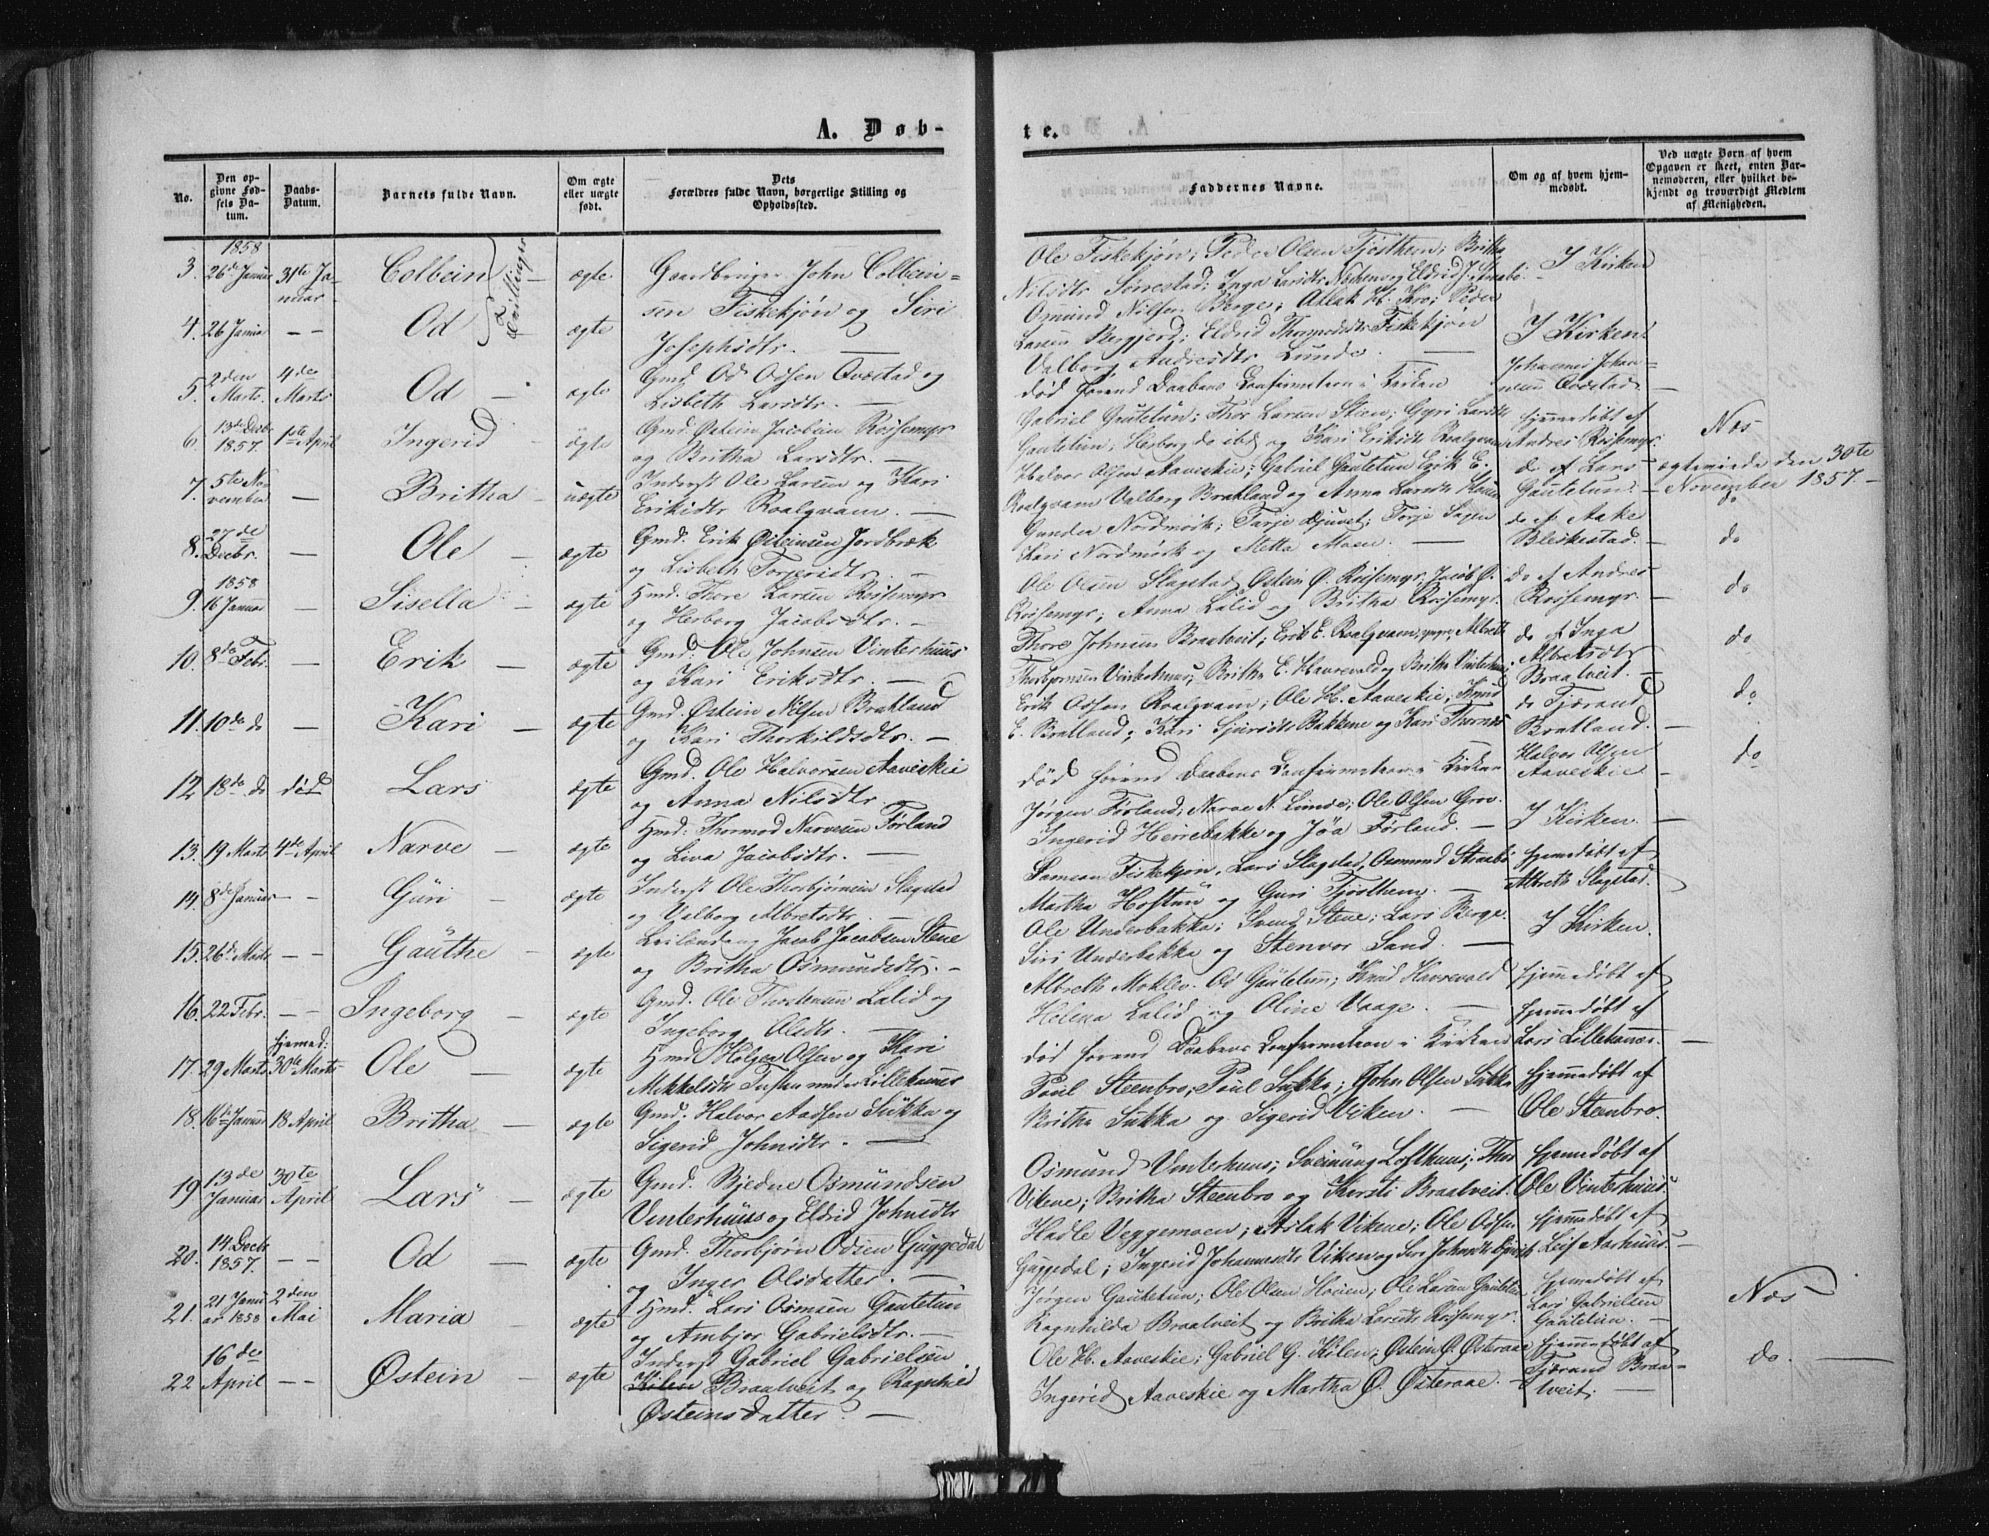 A. Døb-
te.
No.
Den op-
givne Fød-
sels Da-
tum.
Daabs-
Datum.
Barnets fulde Navn.
Om ægte
eller uægte
født.
Dets
Forældres fulde Navn, borgerlige Stilling og
Opholdssted.
Faddernes Navne.
Om og af hvem hjem-
medøbt.
Ved uægte Børn af hvem
Opgaven er skeet, enten Bar-
nemoderen, eller hvilket be-
kjendt og troværdigt Medlem
af Menigheden.
1858
3. 26de Januar 31te Ja-
nuar
Colbein
Tvillinger
ægte
Gaardbruger John Colbein-
sen Fiskekjøn og Siri
Josephsdtr.
Ole Fiskekjøn; Peder Olsen Tjostheim; Britha
Nilsdtr Sørrestad; Inga Larsdtr
I Kirken
4. 26 Januar
Od
ægte
Osmund Nilsen Berge; Aslak H. Kro; Peder
Larsen Bergjord; Eldrid Thormodsdtr Fiskekjøn
Valborg Andresdtr Lunde.
I Kirken
5. 2den Marts 4de Marts
Od
ægte
Gmd Od Odsen Qvæstad og
Lisbeth Larsdtr.
død forend Daabens Confirmation i Kirken
Johannes Johan-
nesen Qvæstad
6. 13de Decbr 1857. 1ste April
Ingerid
ægte
Gmd. Østein Jacobsen Roisemyr
og Britha Larsdtr.
Gabriel Gautetun; Thor Larsen Stien; Gyri Larsdtr
Gautetun; Herborg do ibd og Kari Eriksdtr Roalqvam
hjemmedøbt af
Andres Roisemyr.
Næs
7. 5te No-
vember
Britha
uægte
Inderst Ole Larsen og Kari
Eriksdtr Roalqvam.
Halvor Olsen Aaveskie; Gabriel Gautetun Erik E.
Roalqvam Valborg Bratland og Anna Larsdtr
do af Lars
Gautetun.
ægteviede den 30te
November 1857.
do
8. 27de Decbr.
Ole
ægte
Gmd. Erik Østeinsen Jordbræk
og Lisbeth Torgersdtr.
Gunder Nordmork; Tarje Djuvet; Torje Sagen
Kari Nordmørk og Metta Moen.
do af Aake
Bleskestad.
do
1858
9. 16 Januar
Sisella
ægte
Hmd. Thore Larsen Roisemyr
og Herborg Jacobsdtr.
Ole Olsen Slagstad Østein Ø. Roisemyr, Jacob Ø.
Roisemyr; Anna Lalid og Britha Roisemyr.
do af Andres
Roisemyr.
do
10. 8de Febr.
Erik
ægte
Gmd: Ole Johnsen Vinterhuus
og Kari Eriksdtr.
Thore Johnsen Braatveit; Erik E. Roalqvam; Albreth
Thorbjørnsen Vinterhuus; Britha E. Havrevold og Britha Vinterhuus
do af Inga
Albretsdtr
Braatveit.
do
11. 10de do
Kari
ægte
Gmd. Østein Nilsen Bratland
og Kari Thorkildsdtr.
Erik Odsen Roalqvam; Ole H. Aaveskie; Knud
E. Bratland; Kari Sjursdtr Bakkene og Kari Thornæs
do Tjærand
Bratland.
do
12. 18de do død
Lars
ægte
Gmd. Ole Halvorsen Aaveskie
og Anna Nilsdtr
død forend Daabens Confirmation i Kirken
Halvor Olsen
Aaveskie
do
13. 19 Marts 4de April
Narve
ægte
Hmd: Thormod Narvesen Førland
og Liva Jacobsdtr.
Jørgen Førland, Narve N. Limde; Ole Olsen Gro.
Ingerid Herrebakke og Jøa Førland.
I Kirken.
14. 8de Januar
Guri
ægte
Inderst Ole Thorbjørnsen Slagstad
og Valborg Albretsdtr.
Samson Fiskekjøn, Lars Slagstad, Osmund Straabø
Martha Hoftun og Guri Tjostheim.
hjemmedøbt af
Albreth Slagstad.
15. 26de Marts
Gauthe
ægte
Leilænding Jacob Jacobsen Stene
og Britha Osmundsdtr.
Ole Underbakka; Svend Stene; Lars Berge.
Siri Underbakke og Stenvor Sand.
I Kirken.
16. 22 Febr.
Ingeborg
ægte
Gmd. Ole Thorstensen Lalid og
Ingeborg Olsdtr.
Albreth Moklev. Od Gautetun; Knud Havrevold
Helena Lalid og Oline Vaage.
hjemmedøbt af
17. 29 Marts
hjemmed:
30te Marts
Ole
ægte
Hmd Holger Olsen og Kari
Mikkelsdtr Tufta under Lillehamer
død forend Daabens Confirmation i Kirken
hjemmedøbt af
Lars Lillehamer.
18. 16de Januar 18 April
Britha
ægte
Gmd: Halvor Aadsen Sukka og
Sigerid Johnsdtr.
Poul Steenbro; Poul Sukka; John Olsen Sukka
Britha Sukka og Sigerid Viken.
hjemmedøbt af
Ole Steenbro.
19. 13de Januar 30te April
Lars
ægte
Gmd. Bjedne Osmundsen
Vinterhuus og Eldrid Johnsdtr
Osmund Vinterhuus; Sveinung Lofthuus; Thor
Vikene; Britha Steenbro og Korsti Braatveit.
hjemmedøbt af
Ole Vinterhuus.
20. 14 Decbr 1857.
Od
ægte
Gmd. Thorbjørn Odsen Guggedal
og Inger Olsdatter.
Hadle Veggemoen; Aslak Vikene; Ole Odsen
Guggedal; Ingerid Johannesdtr Viken og Siri Johnsdtr
hjemmedøbt af
Leif Aarhuus.
21. 21 Janu-
ar 1858 2den Mai
Maria
ægte
Hmd. Lars Osmsen Gautetun
og Ambjør Gabrielsdtr.
Jørgen Gautetun; Ole Olsen Hoien; Ole Larsen Gautetun
Ragnhilda Braatveit og Britha Larsdtr Roisemyr.
hjemmedøbt af
Lars Gabrielsen
Gautetun.
Næs
22. 16de April
Østein
ægte
Inderst Gabriel Gabrielsen
Kilen Braatveit og Ragnhild
Østeinsdatter.
Ole H. Aaveskie; Gabriel G. Kilen; Østein Ø. Østeraae
Ingerid Aaveskie og Martha Ø. Østeraae.
hjemmedøbt af
Tjærand Braa-
tveit.
do.